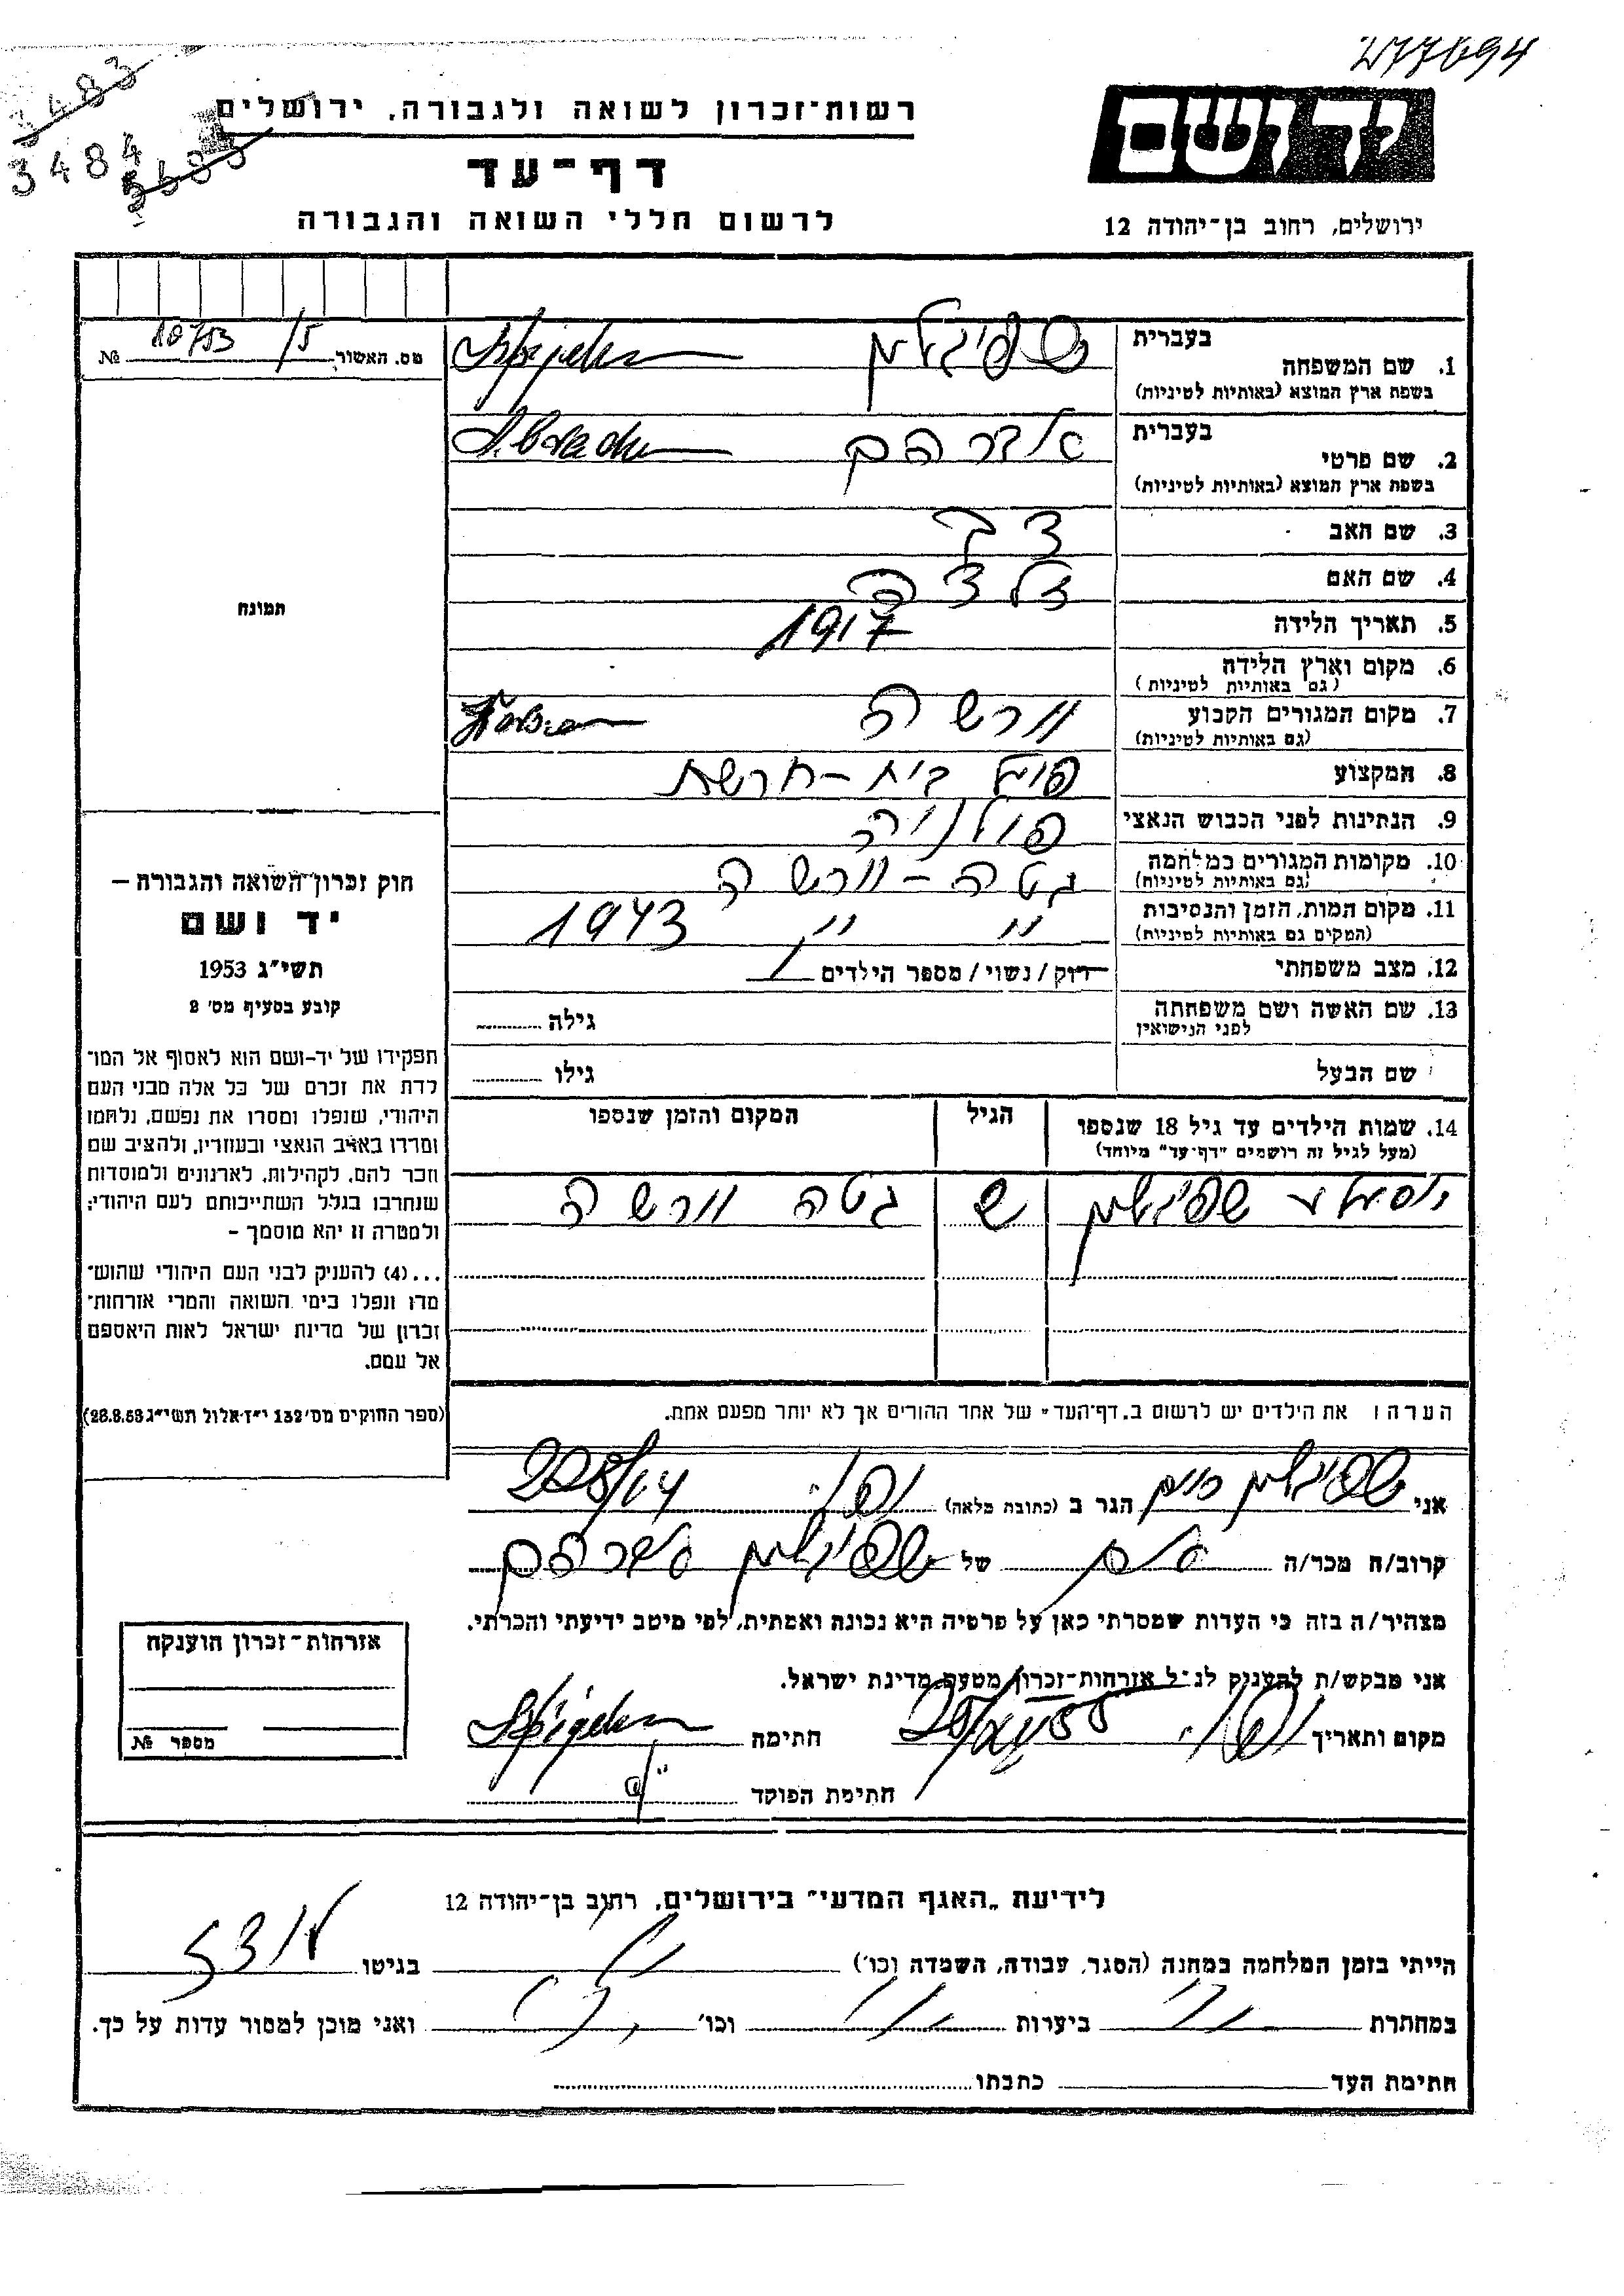 277694
3483
3484
רשות־זכרון לשואה ולגבורה, ירושלים
דף־עד
לרשום חללי השואה והגבורה
יד ושם
ירושלים, רחוב בן־יהודה 12
מס. האשור 10753/5 №
בעברית שפיגלמן
1. שם המשפחה
בשפת ארץ המוצא (באותיות לטיניות)
בעברית אברהם
2. שם פרטי
בשפת ארץ המוצא (באותיות לטיניות)
3. שם האב
4. שם האם
5. תאריך הלידה 1917
6. מקום וארץ הלידה
(גם באותיות לטיניות)
7. מקום המגורים הקבוע וורשה
(גם באותיות לטיניות)
8. המקצוע פועל בית-חרשת
9. הנתינות לפני הכבוש הנאצי פולניה
10. מקומות המגורים במלחמה גטה - וורשה
(גם באותיות לטיניות)
11. מקום המות, הזמן והנסיבות " " 1943
(המקום גם באותיות לטיניות)
12. מצב משפחתי רוק / נשוי / מספר הילדים 1
13. שם האשה ושם משפחתה גילה
לפני הנישואין
שם הבעל גילו
14. שמות הילדים עד גיל 18 שנספו הגיל המקום והזמן שנספו
(מעל לגיל זה רושמים "דף־עד" מיוחד)
שפיגלמן גטה וורשה
הערה: את הילדים יש לרשום ב„דף־העד" של אחד ההורים אך לא יותר מפעם אחת.
תמונה
חוק זכרון השואה והגבורה —
יד ושם
תשי"ג 1953
קובע בסעיף מס' 2
תפקידו של יד-ושם הוא לאסוף אל המו־
לדת את זכרם של כל אלה מבני העם
היהודי, שנפלו ומסרו את נפשם, נלחמו
ומרדו באויב הנאצי ובעוזריו, ולהציב שם
וזכר להם, לקהילות, לארגונים ולמוסדות
שנחרבו בגלל השתייכותם לעם היהודי;
ולמטרה זו יהא מוסמך —
...(4) להעניק לבני העם היהודי שהוש־
מדו ונפלו בימי השואה והמרי אזרחות־
זכרון של מדינת ישראל לאות היאספם
אל עמם.
(ספר החוקים מס' 132 י"ז אלול תשי"ג 28.8.53)
אני שפיגלמן חיים הגר ב (כתובת מלאה) יפו 228/14
קרוב/ה מכר/ה של שפיגלמן אברהם
מצהיר/ה בזה כי העדות שמסרתי כאן על פרטיה היא נכונה ואמתית, לפי מיטב ידיעתי והכרתי.
אני מבקש/ת להעניק לנ"ל אזרחות־זכרון מטעם מדינת ישראל.
מקום ותאריך יפו חתימה
חתימת הפוקד
אזרחות־זכרון הוענקה
מספר №
לידיעת „האגף המדעי" בירושלים, רחוב בן־יהודה 12
הייתי בזמן המלחמה במחנה (הסגר, עבודה, השמדה וכו') בגיטו
במחתרת ביערות וכו' ואני מוכן למסור עדות על כך.
חתימת העד כתבתו